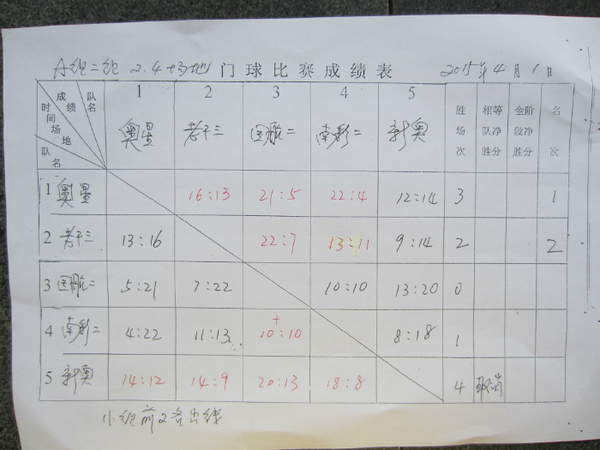 A组二组 2.4场地 门球比赛成绩表 2015年4月1日
成绩 队名 时间 场地 队名 1 2 3 4 5 胜场次 相等队净胜分 全阶段净胜分 名次
奥星 老干三 国航二 南彩二 新奥
1 奥星 16:13 21:5 22:4 12:14 3 1
2 老干三 13:16 22:7 13:11 9:14 2 2
3 国航二 5:21 7:22 10:10 13:20 0
4 南彩二 4:22 11:13 +10:10 8:18 1
5 新奥 14:12 14:9 20:13 18:8 4
小组前2名出线